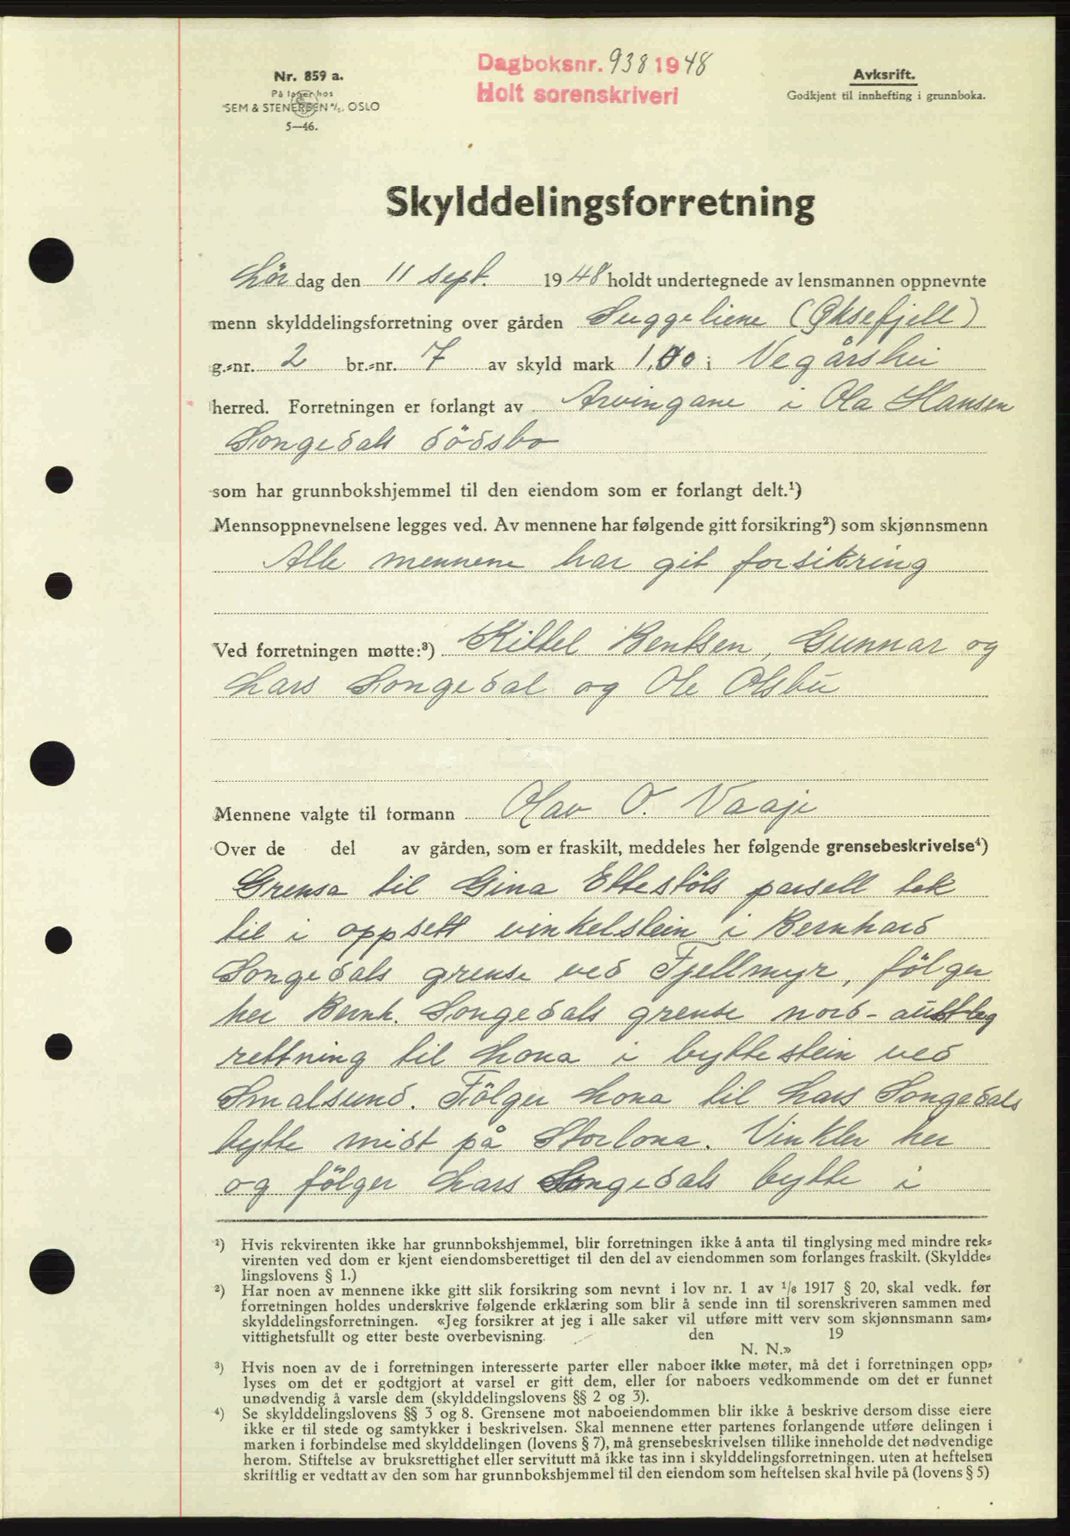 Nr. 859 a.
På lager hos
SEM & STENERSEN A/S. OSLO
5—46.
Dagboksnr. 938 1948
Holt sorenskriveri
Avksrift.
Godkjent til innhefting i grunnboka.
Skylddelingsforretning
Lördag den 11 sept. 1948 holdt undertegnede av lensmannen oppnevnte
menn skylddelingsforretning over gården Suggeliene (Öksefjell)
g.-nr. 2 br.-nr. 7 av skyld mark 1,00 i Vegårshei
herred. Forretningen er forlangt av Arvingane i Ola Hansen
Songedals dödsbo
som har grunnbokshjemmel til den eiendom som er forlangt delt.¹)
Mennsoppnevnelsene legges ved. Av mennene har følgende gitt forsikring²) som skjønnsmenn
Alle mennene har git forsikring
Ved forretningen møtte:³) Kittel Bentsen, Gunnar og
Lars Songedal og Ole Olsbu
Mennene valgte til formann Olav O. Vaaje
Over de del av gården, som er fraskilt, meddeles her følgende grensebeskrivelse⁴)
Grensa til Gina Ettestöls parsell tek
til i oppsett vinkelstein i Bernhard
Songedals grense ved Fjellmyr, fölger
her Bernh. Songedals grense nord-austleg
rettning til Lona i byttestein ved
Smalsund. Fölger Lona til Lars Songedals
bytte midt på Storlona. Vinkler her
og fölger Lars Songedals bytte i
¹) Hvis rekvirenten ikke har grunnbokshjemmel, blir forretningen ikke å anta til tinglysing med mindre rek-
virenten ved dom er kjent eiendomsberettiget til den del av eiendommen som forlanges fraskilt. (Skyldde-
lingslovens § 1.)
²) Har noen av mennene ikke gitt slik forsikring som nevnt i lov nr. 1 av 1/6 1917 § 20, skal vedk. før
forretningen holdes underskrive følgende erklæring som blir å sende inn til sorenskriveren sammen med
skylddelingsforretningen. «Jeg forsikrer at jeg i alle saker vil utføre mitt verv som skjønnsmann sam-
vittighetsfullt og etter beste overbevisning. den 19
N. N.»
³) Hvis noen av de i forretningen interesserte parter eller naboer ikke møter, må det i forretningen opp-
lyses om det er godtgjort at varsel er gitt dem, eller for naboers vedkommende om det er funnet
unødvendig å varsle dem (skylddelingslovens §§ 2 og 3).
⁴) Se skylddelingslovens §§ 3 og 8. Grensene mot naboeiendommen blir ikke å beskrive dersom disse eiere
ikke er til stede og samtykker i beskrivelsen. Skal mennene etter partenes forlangende utføre delingen i
marken i forbindelse med skylddelingen (lovens § 7), må grensebeskrivelsen tillike inneholde det nødvendige
herom. Stiftelse av bruksrettighet eller servitutt må ikke tas inn i skylddelingsforretningen. uten at heftelsen
skriftlig er vedtatt av den som har grunnbokshjemmel til den eiendom som heftelsen skal hvile på (lovens § 5)